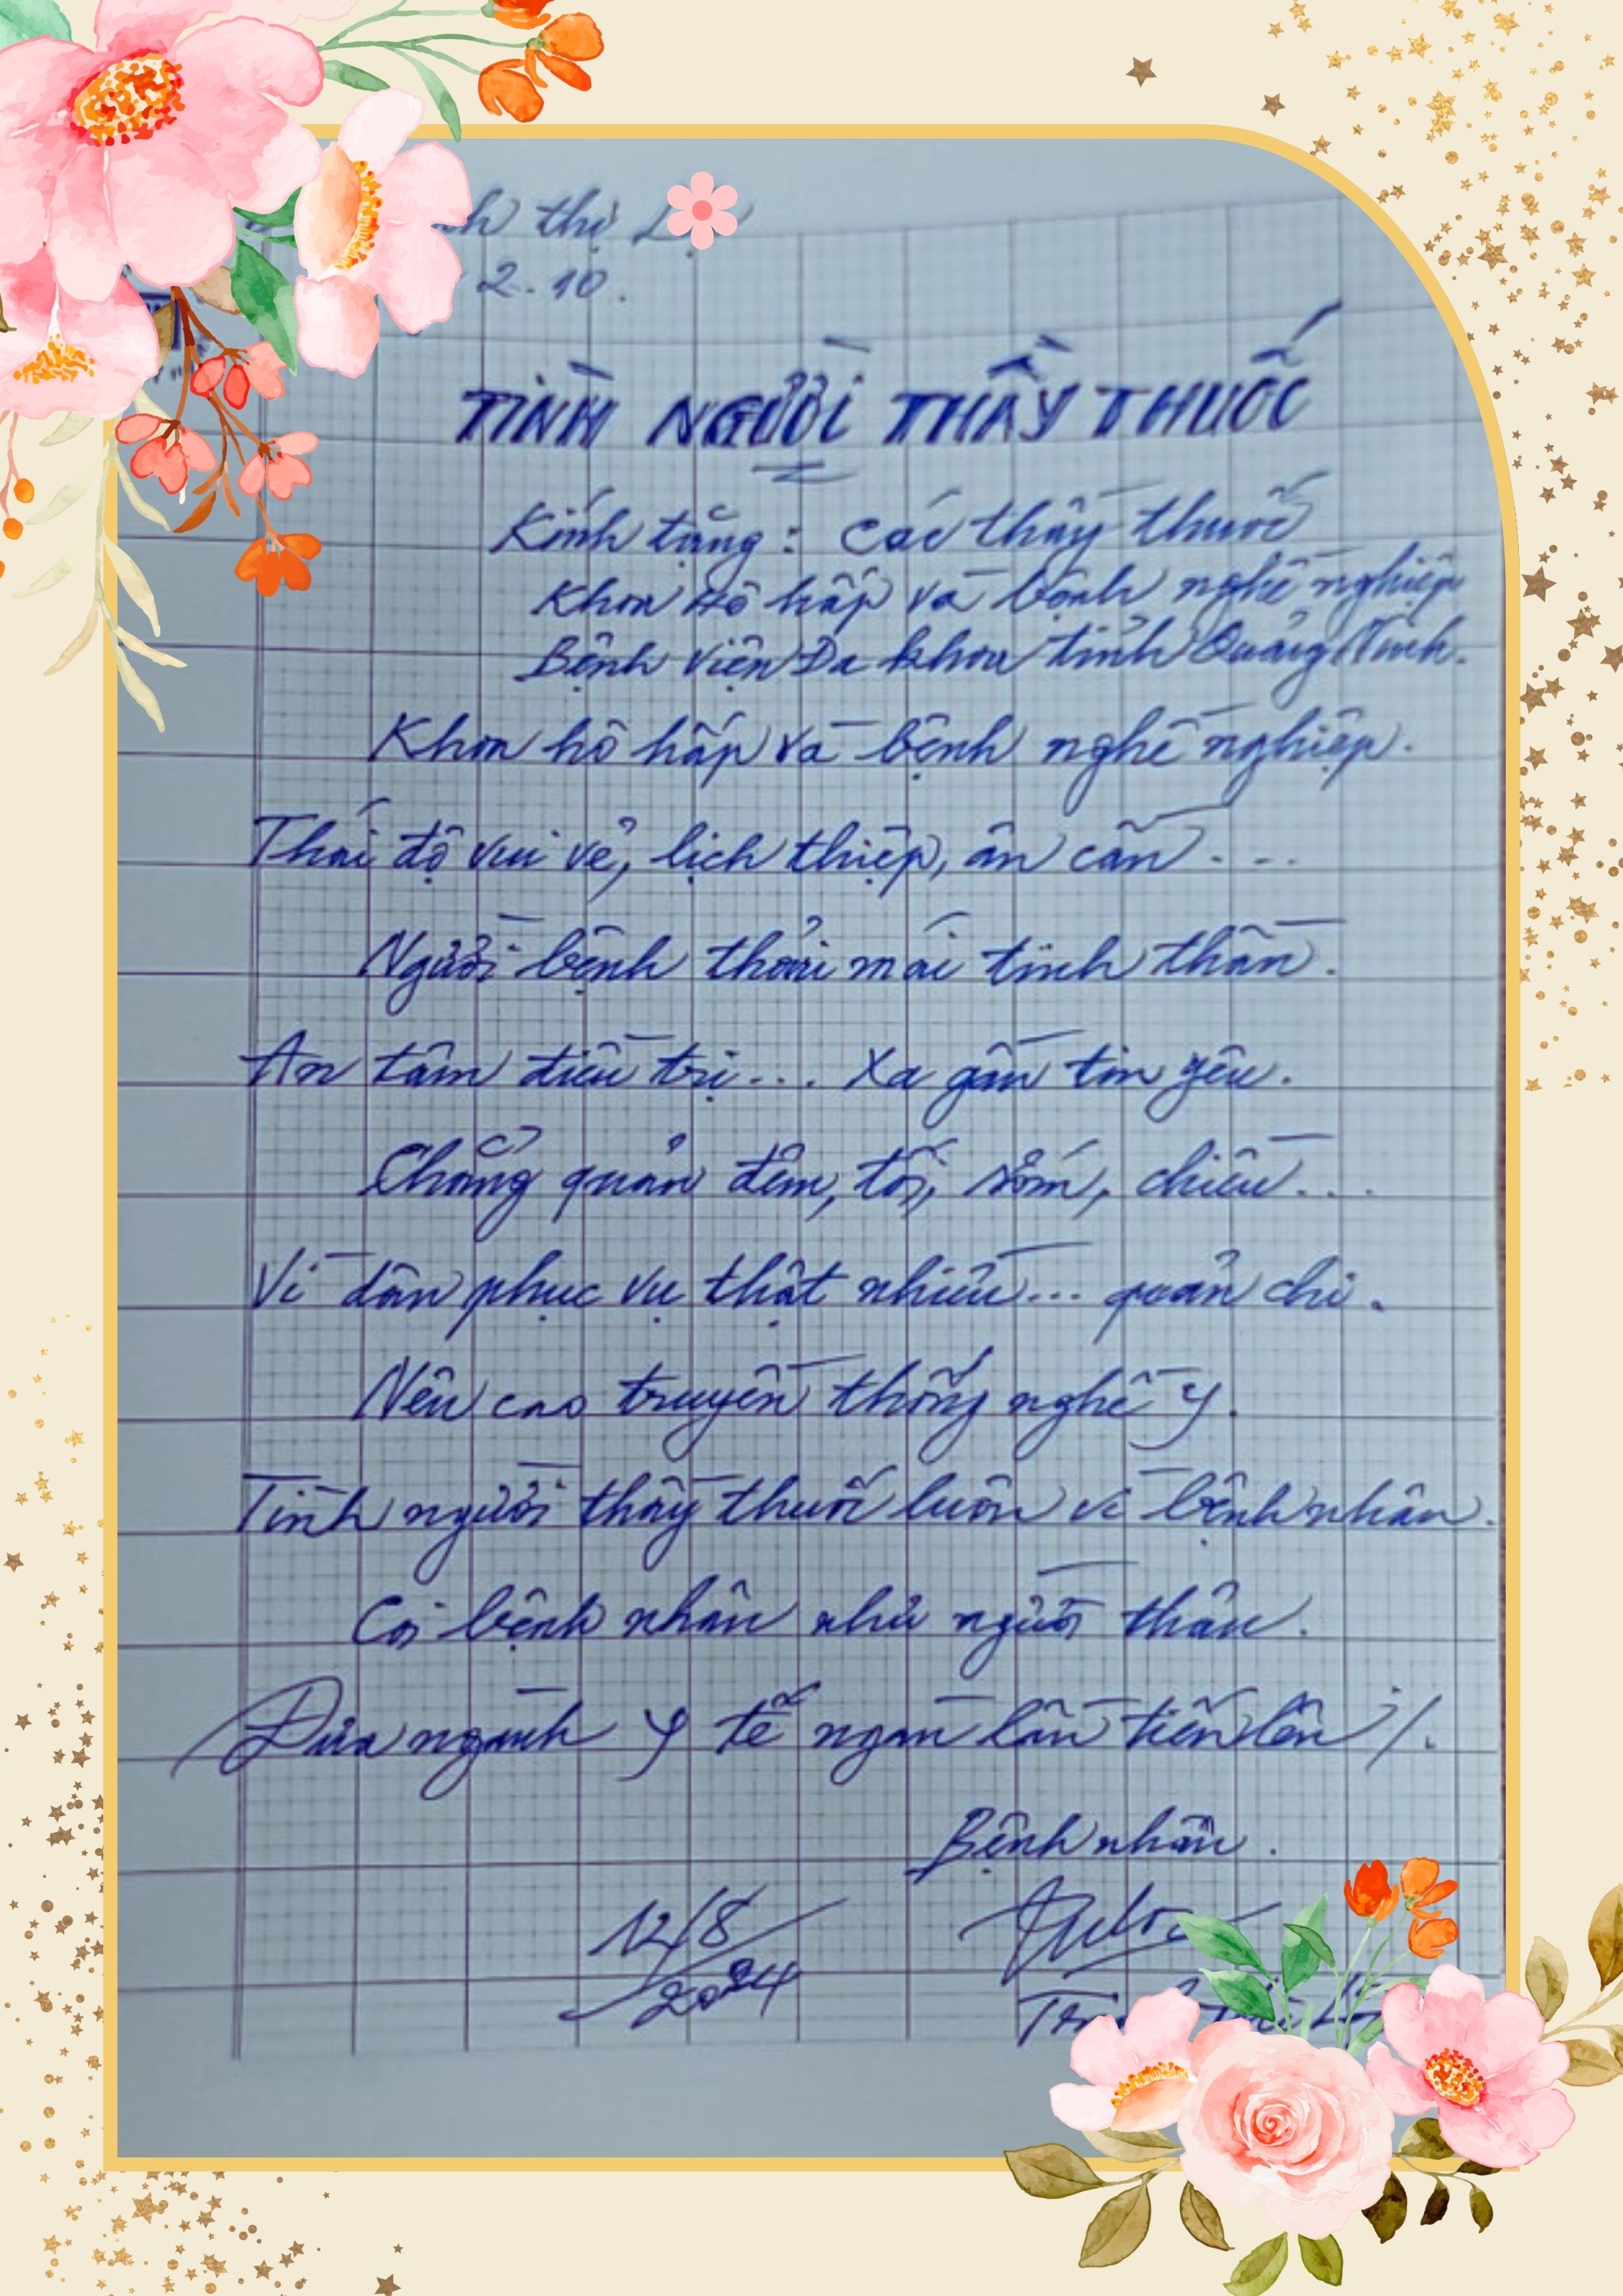 thị
2.10.
TÌNH NGƯỜI THẦY THUỐC
Kính tặng: Các thầy thuốc
Khoa Hô hấp và bệnh nghề nghiệp
Bệnh viện Đa khoa tỉnh Quảng Ninh.
Khoa hô hấp và bệnh nghề nghiệp.
Thái độ vui vẻ, lịch thiệp, ân cần...
Người bệnh thoải mái tinh thần.
An tâm điều trị... Xa gần tin yêu.
Chẳng quản đêm, tối, sớm, chiều...
Vì dân phục vụ thật nhiều... quản chi.
Nêu cao truyền thống nghề y.
Tình người thầy thuốc luôn vì bệnh nhân.
Coi bệnh nhân như người thân.
Đưa ngành y tế ngàn lần tiến lên ./.
Bệnh nhân.
12/8
2024